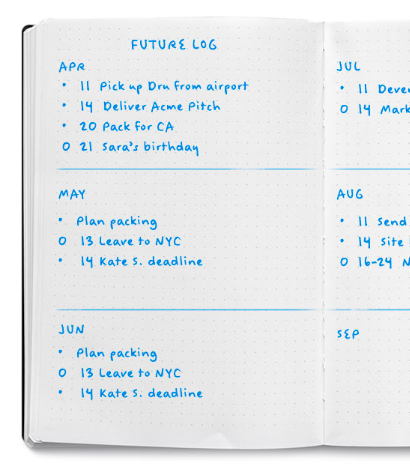 FUTURE LOG
APR
• 11 Pick up Dru from airport
• 14 Deliver Acme Pitch
• 20 Pack for CA
O 21 Sara's birthday
MAY
• Plan packing
O 13 Leave to NYC
• 14 Kate S. deadline
JUN
• Plan packing
O 13 Leave to NYC
• 14 Kate S. deadline
JUL
• 11
O 14
AUG
• 11 Send
• 14 Site
O 16-24
SEP